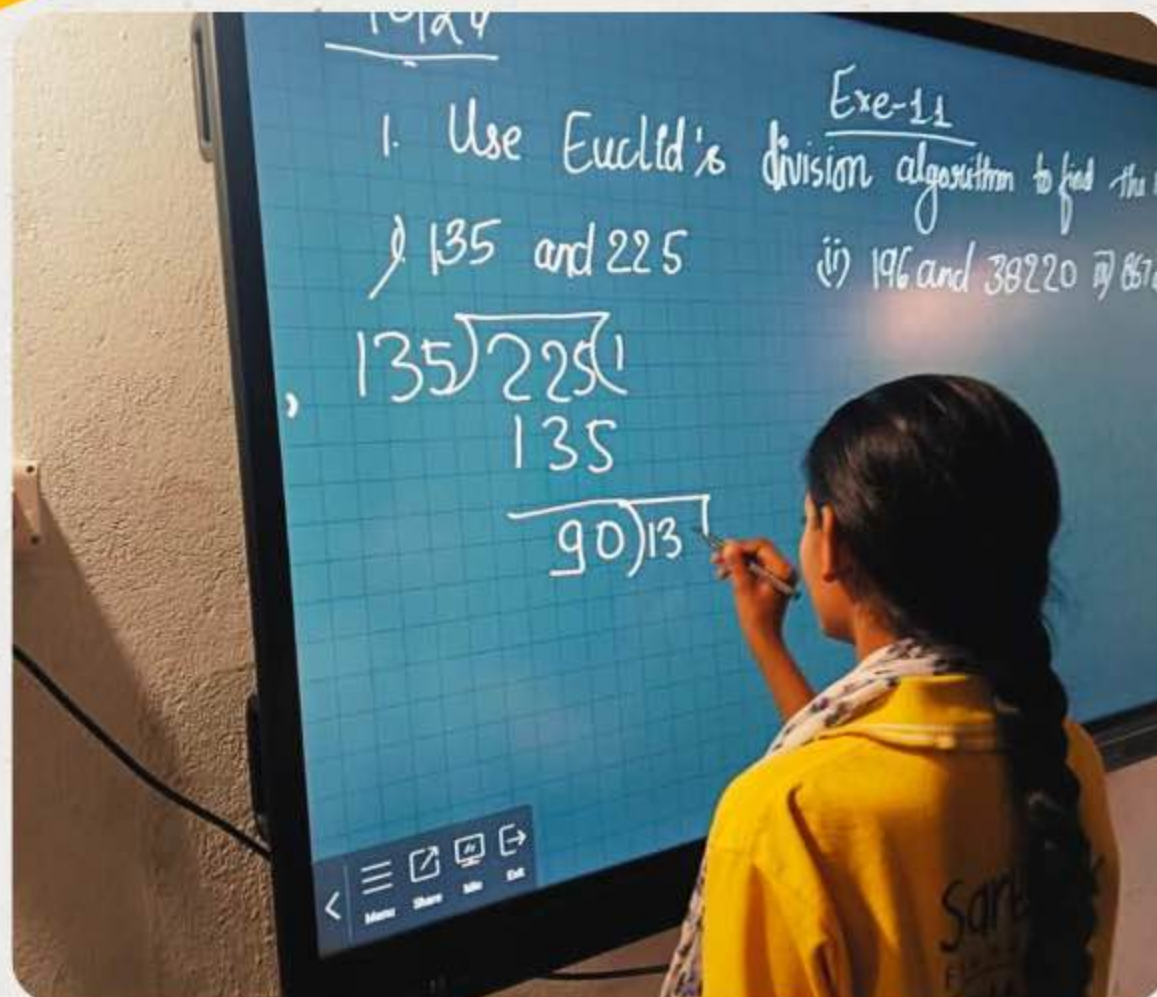 Exe-11
1. Use Euclid's division algorithm to find the
i) 135 and 225 (ii) 196 and 38220 iii) 867
135)225(1
135
90)13
Menu Share Exit